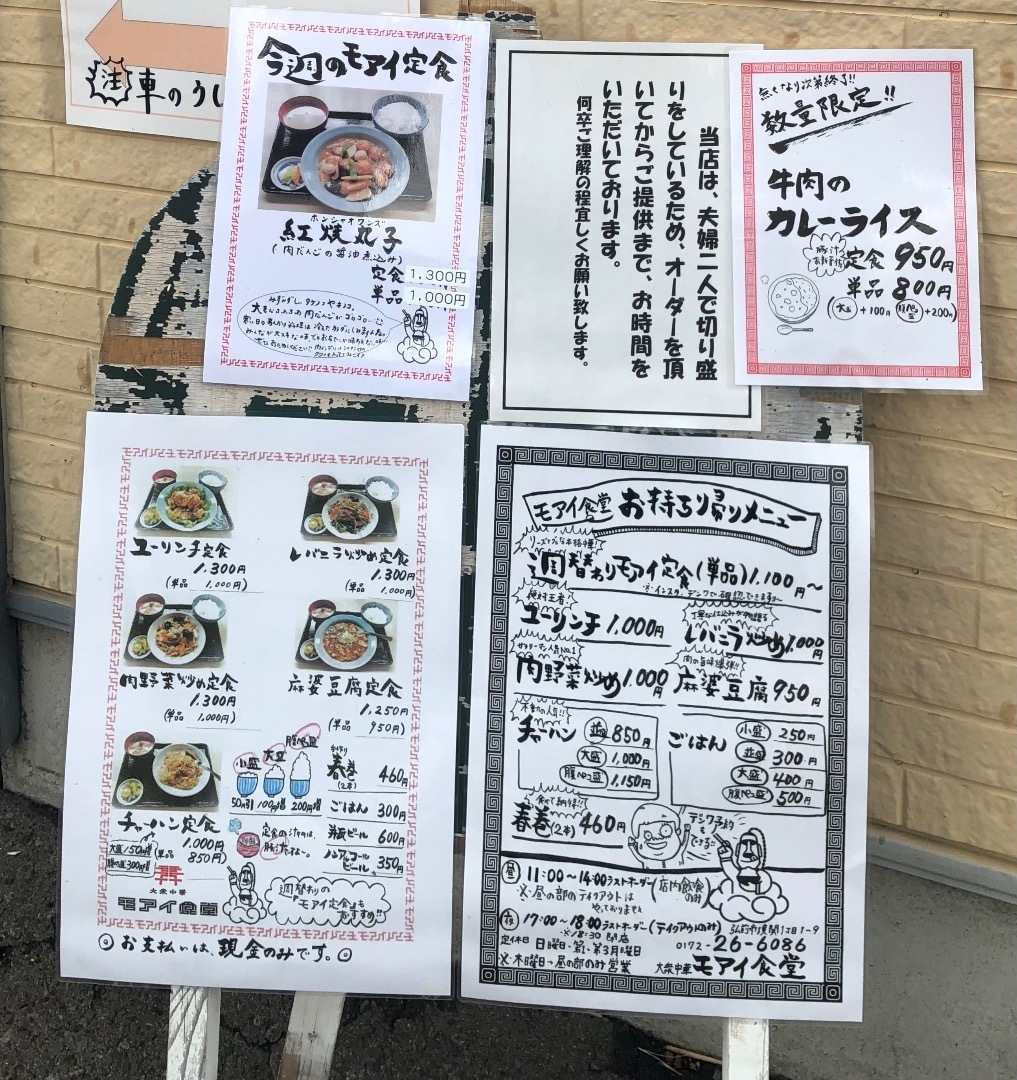 注 車のうし
今週のモアイ定食
ホンシャオワンズ
紅焼丸子
(肉だんごの醤油煮込み)
定食 1,300円
単品 1,000円
当店は、夫婦二人で切り盛
りをしているため、オーダーを頂
いてからご提供まで、お時間を
いただいております。
何卒ご理解の程宜しくお願い致します。
無くなり次第終了!!
数量限定!!
牛肉の
カレーライス
定食 950円
単品 800円
(大盛 +100円 腹ペコ盛 +200円)
ユーリンチ定食
1,300円
(単品 1,000円)
レバニラ炒め定食
1,300円
(単品 1,000円)
肉野菜炒め定食
1,300円
(単品 1,000円)
麻婆豆腐定食
1,250円
(単品 950円)
チャーハン定食
1,000円
(単品 850円)
大盛150円増
腹ペコ盛300円増
小盛 大盛 腹ペコ盛
50円引 100円増 200円増
手作り
春巻 460円
(2本)
ごはん 300円
瓶ビール 600円
ノンアルコール
ビール 350円
定食の汁物は、
豚汁だよ〜。
大衆中華
モアイ食堂
週替わりの
"モアイ定食"も
おすすめ!!
◎お支払いは、現金のみです。◎
モアイ食堂 お持ち帰りメニュー
リーズナブルな本格中華!
週替わりモアイ定食(単品)1,100円〜
※インスタ、デンワで確認できます〜
絶対王者
ユーリンチ 1,000円
丁寧な仕込みが物語る
レバニラ炒め 1,000円
サラリーマン人気No.1
肉野菜炒め 1,000円
肉の旨味爆弾!!
麻婆豆腐 950円
不動の人気!!
チャーハン 並盛 850円
大盛 1,000円
腹ペコ盛 1,150円
ごはん 小盛 250円
並盛 300円
大盛 400円
腹ペコ盛 500円
食べて納得!!
春巻(2本) 460円
デンワ予約
も
できる!!
昼 11:00〜14:00ラストオーダー(店内飲食のみ)
※昼の部のテイクアウトは
やっておりません
夜 17:00〜18:00ラストオーダー(テイクアウトのみ)
※18:30 閉店
定休日 日曜日・第1・第3月曜日
※木曜日→昼の部のみ営業
0172-26-6086
大衆中華 モアイ食堂